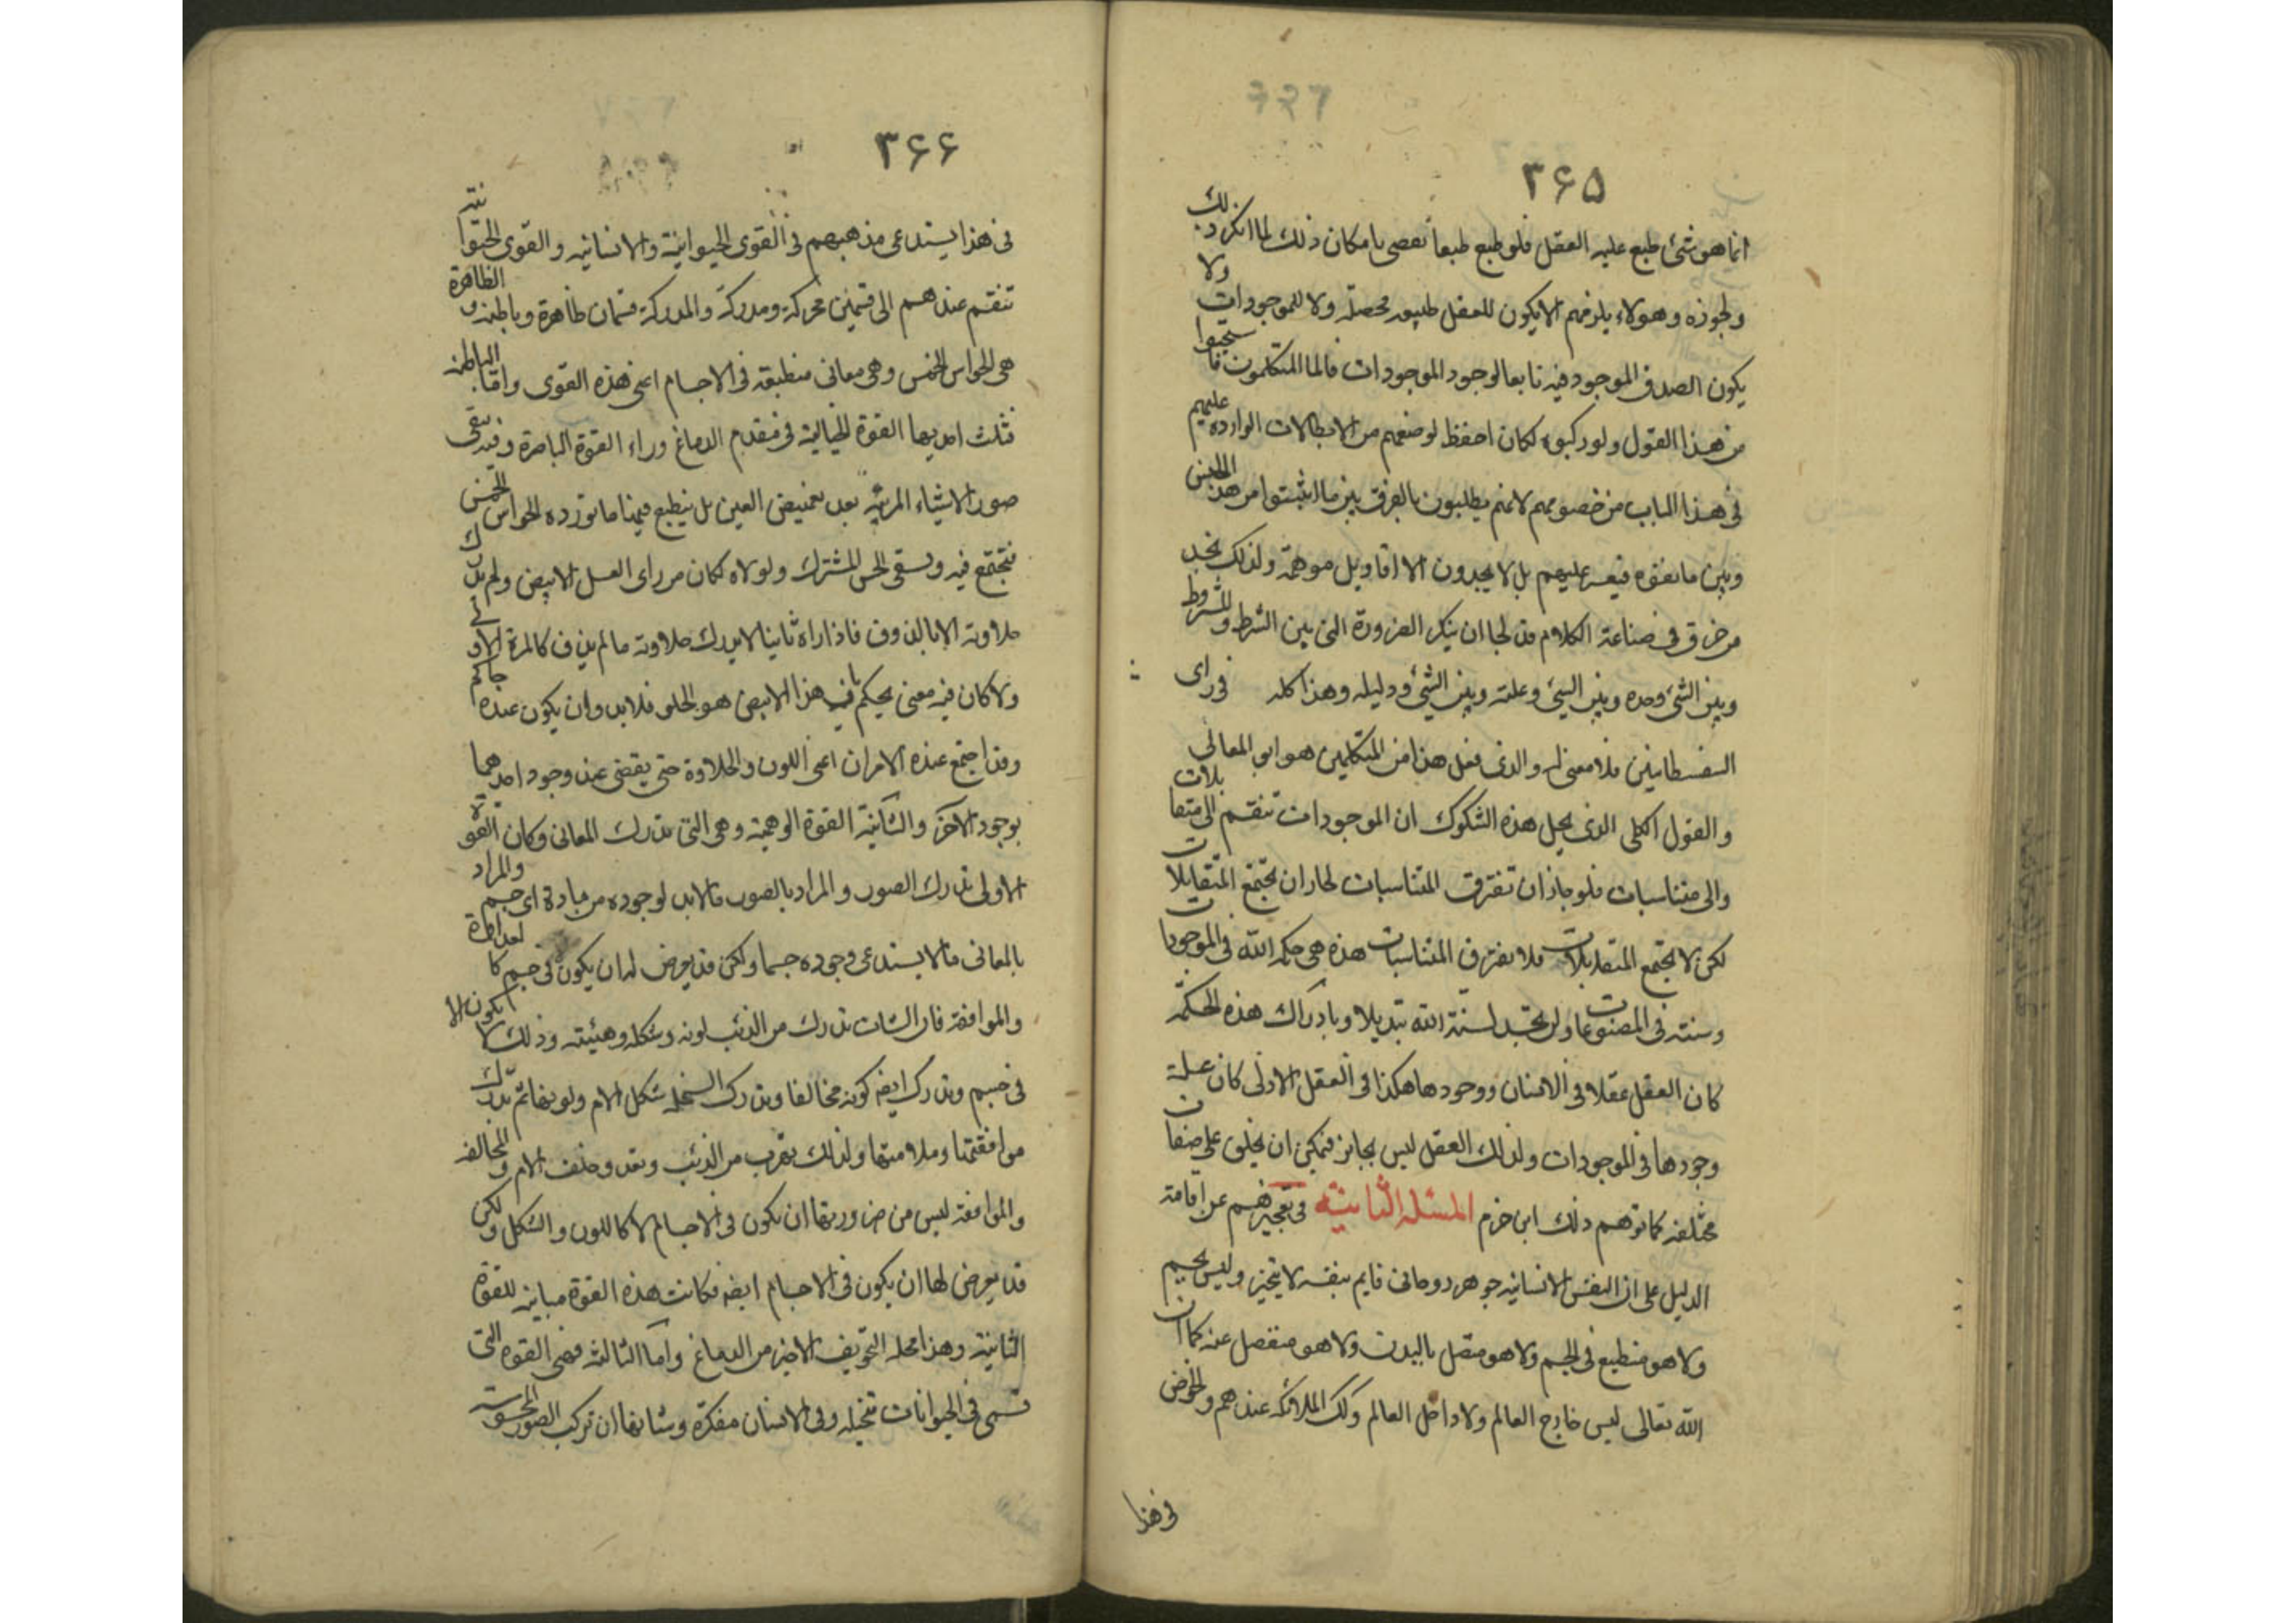 ۳۶۵
انما هو شئ طبع عليه العقل فلو طبع طبعا تقضى بامكان ذلك لما انكر ذلك
ولجوزه وهولاء يلزمهم الا يكون للعقل طبيعه محصلة ولا للموجودات ولا
يكون الصدق الموجود فيه تابعا لوجود الموجودات فاما المتكلمون فاستحيوا
من هذا القول ولو ركبوه لكان احفظ لوضعهم من الابطالات الوارده عليهم
فى هذا الباب من خصومهم لانهم يطلبون بالفرق بين ما اثبتوا من هذا الجنس
وبين ما نفوه فيعسر عليهم بل لا يجدون الا اقاويل موهمة ولذلك نجد
من خرق فى صناعة الكلام قد لجا ان ينكر الضرورة التى بين الشرط والمشروط
وبين الشئ وحده وبين الشئ وعلته وبين الشئ ودليله وهذا كله فى راى
السفسطايين فلا معنى له والذى فعل هذا من المتكلمين هو ابو المعالى
والقول الكلى الذى يحل هذه الشكوك ان الموجودات تنقسم الى متقابلات
والى متناسبات فلو جاز ان تفترق المتناسبات لجاز ان تجتمع المتقابلات
لكن لا تجتمع المتقابلات فلا يفترق المتناسبات هذه هى حكمه الله فى الموجودات
وسنته فى المصنوعات ولن تجد لسنة الله تبديلا وبادراك هذه الحكمة
كان العقل عقلا فى الانسان ووجودها هكذا فى العقل الازلى كان علة
وجودها فى الموجودات ولذلك العقل ليس بجايز فيمكن ان يخلق على صفات
مختلفه كما توهم ذلك ابن حزم المسئله الثانيه فى تعجيزهم عن اقامة
الدليل على ان النفس الانسانيه جوهر روحانى قايم بنفسه لا يتحيز وليس بجسم
ولا هو منطبع فى الجسم ولا هو متصل بالبدن ولا هو منفصل عنه كما ان
الله تعالى ليس خارج العالم ولا داخل العالم وكك الملائكه عندهم والخوض
فى هذا
۳۶۶
فى هذا يستدعى مذهبهم فى القوى الحيوانية والانسانيه والقوى الحيوانية
تنقسم عندهم الى قسمين محركة ومدركة والمدركة قسمان ظاهرة وباطنه والظاهرة
هى الحواس الخمس وهى معانى منطبقه فى الاجسام اعنى هذه القوى واما الباطنه
فثلث احديها القوة الخيالية فى مقدم الدماغ وراء القوة الباصرة وفيه يبقى
صور الاشياء المرئيه بعد تغميض العين بل ينطبع فيها ما تورده الحواس الخمس
فتجتمع فيه ويسمى الحس المشترك ولولاه لكان من راى العسل الابيض ولم يدرك
حلاوته الا بالذوق فاذا راه ثانيا لا يدرك حلاوته ما لم يذق كالمرة الاولى
ولا كان فيه معنى يحكم بان هذا الابيض هو الحلو فلابد وان يكون عنده حاكم
وقد اجتمع عنده الامران اعنى اللون والحلاوة حتى يقضى عند وجود احدهما
بوجود الآخر والثانية القوة الوهمية وهى التى تدرك المعانى وكان القوة
الاولى تدرك الصور والمراد بالصور ما لابد لوجوده من مادة اى جسم والمراد
بالمعانى ما لا يستدعى وجوده جسما ولكن قد يعرض له ان يكون فى جسم كالعداوة
والموافقه فان الشاة تدرك من الذئب لونه وشكله وهيئته وذلك لا يكون الا
فى جسم وتدرك ايضا كونه مخالفا وتدرك السخله شكل الام ولونها ثم تدرك
موافقتها وملامتها ولذلك تهرب من الذئب وتعدو خلف الام والمخالفه
والموافقه ليس من ضرورتها ان تكون فى الاجسام لا كاللون والشكل ولكن
قد يعرض لها ان يكون فى الاجسام ايضا فكانت هذه القوة مباينه للقوة
الثانية وهذا محله التجويف الاخير من الدماغ واما الثالثه فهى القوه التى
تسمى فى الحيوانات متخيله وفى الانسان مفكرة وشانها ان تركب الصور المحسوسة